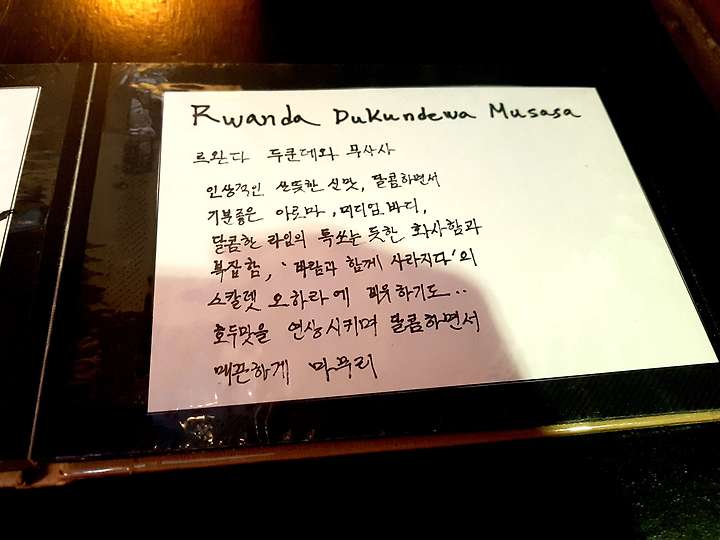 Rwanda Dukundewa Musasa
르완다 두쿤데와 무사사
인상적인 산뜻한 신맛, 달콤하면서
기분좋은 아로마, 미디엄 바디,
달콤한 라임의 톡쏘는 듯한 화사함과
복잡함, '바람과 함께 사라지다'의
스칼렛 오하라에 비유하기도..
호두맛을 연상시키며 달콤하면서
매끈하게 마무리